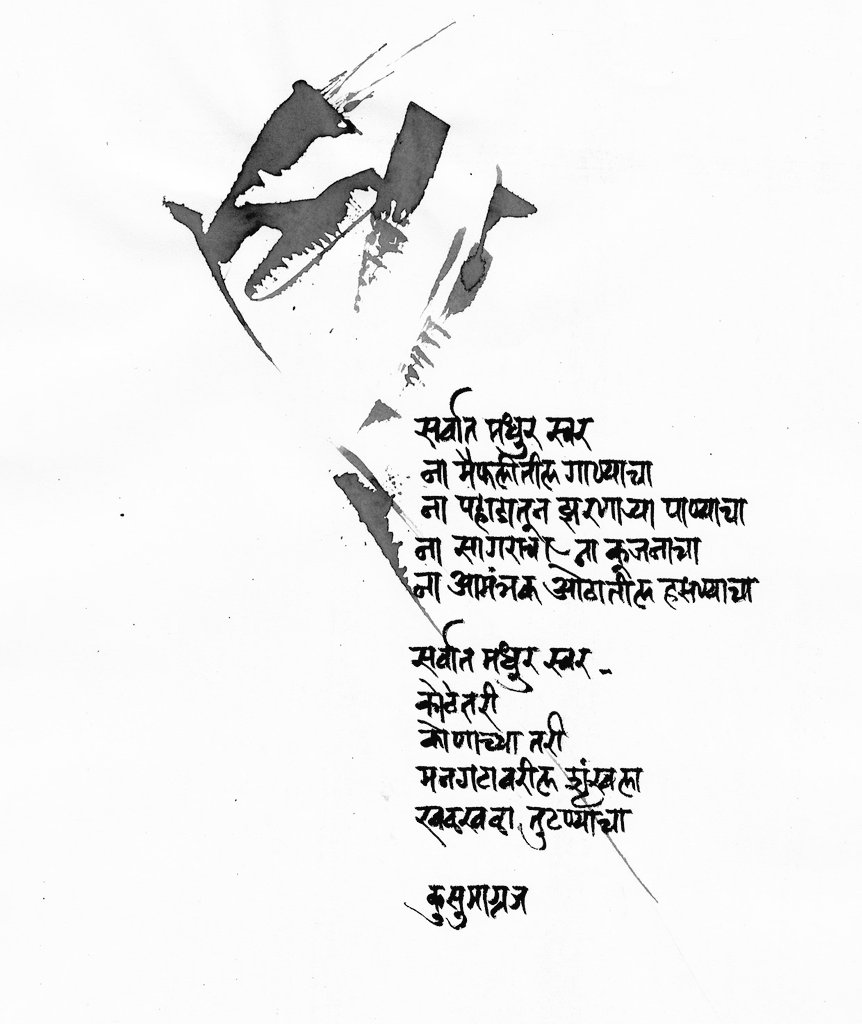 सर्वात मधुर स्वर
ना मैफलीतील गाण्याचा
ना पहाडातून झरणाऱ्या पाण्याचा
ना सागराचा - ना कूजनाचा
ना आमंत्रक ओठातील हसण्याचा
सर्वात मधुर स्वर -
कोठे तरी
कोणाच्या तरी
मनगटावरील शृंखला
खळखळा तुटण्याचा
कुसुमाग्रज